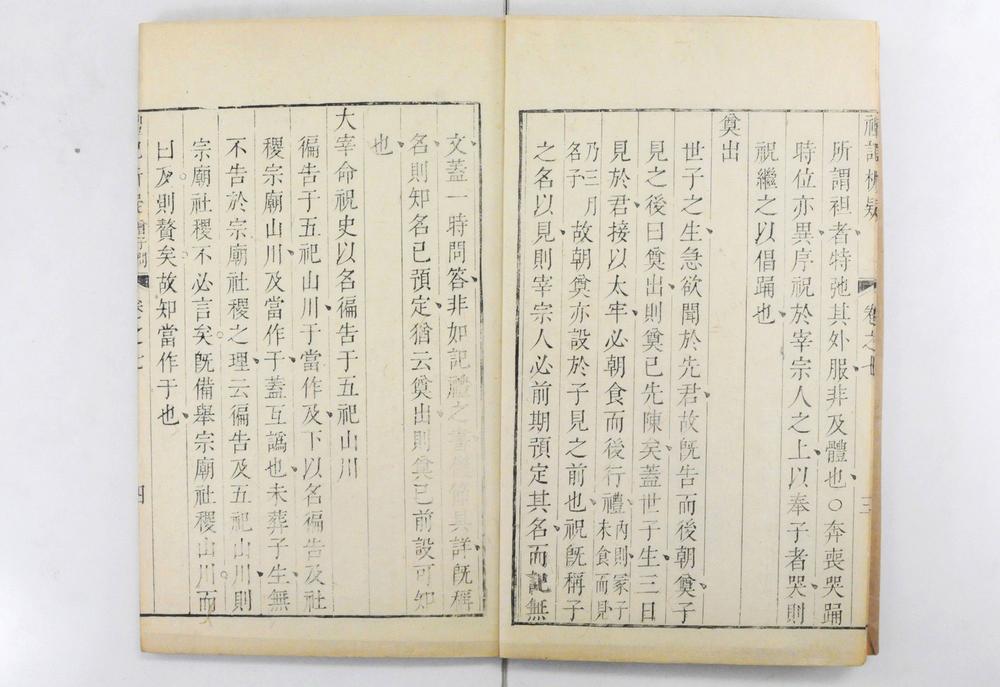 卷之
三
所謂袒者特弛其外服非及體也○奔喪哭踊
時位亦異序祝於宰宗人之上以奉子者哭則
祝繼之以倡踊也
奠出
世子之生急欲聞於先君故旣告而後朝奠子
見之後曰奠出則奠已先陳矣蓋世子生三日
見於君接以太牢必朝食而後行禮內則冡子未食而見
乃三月名子故朝奠亦設於子見之前也祝旣稱子
之名以見則宰宗人必前期預定其名而記無
文蓋一時問答非如記禮之書條具詳旣稱
名則知名已預定猶云奠出則奠已前設可知
也
大宰命祝史以名徧告于五祀山川
徧告于五祀山川于當作及下以名徧告及社
稷宗廟山川及當作于蓋互譌也未葬子生無
不告於宗廟社稷之理云徧告及五祀山川則
宗廟社稷不必言矣旣備舉宗廟社稷山川而
曰及則贅矣故知當作于也
曾子問
卷之七
四